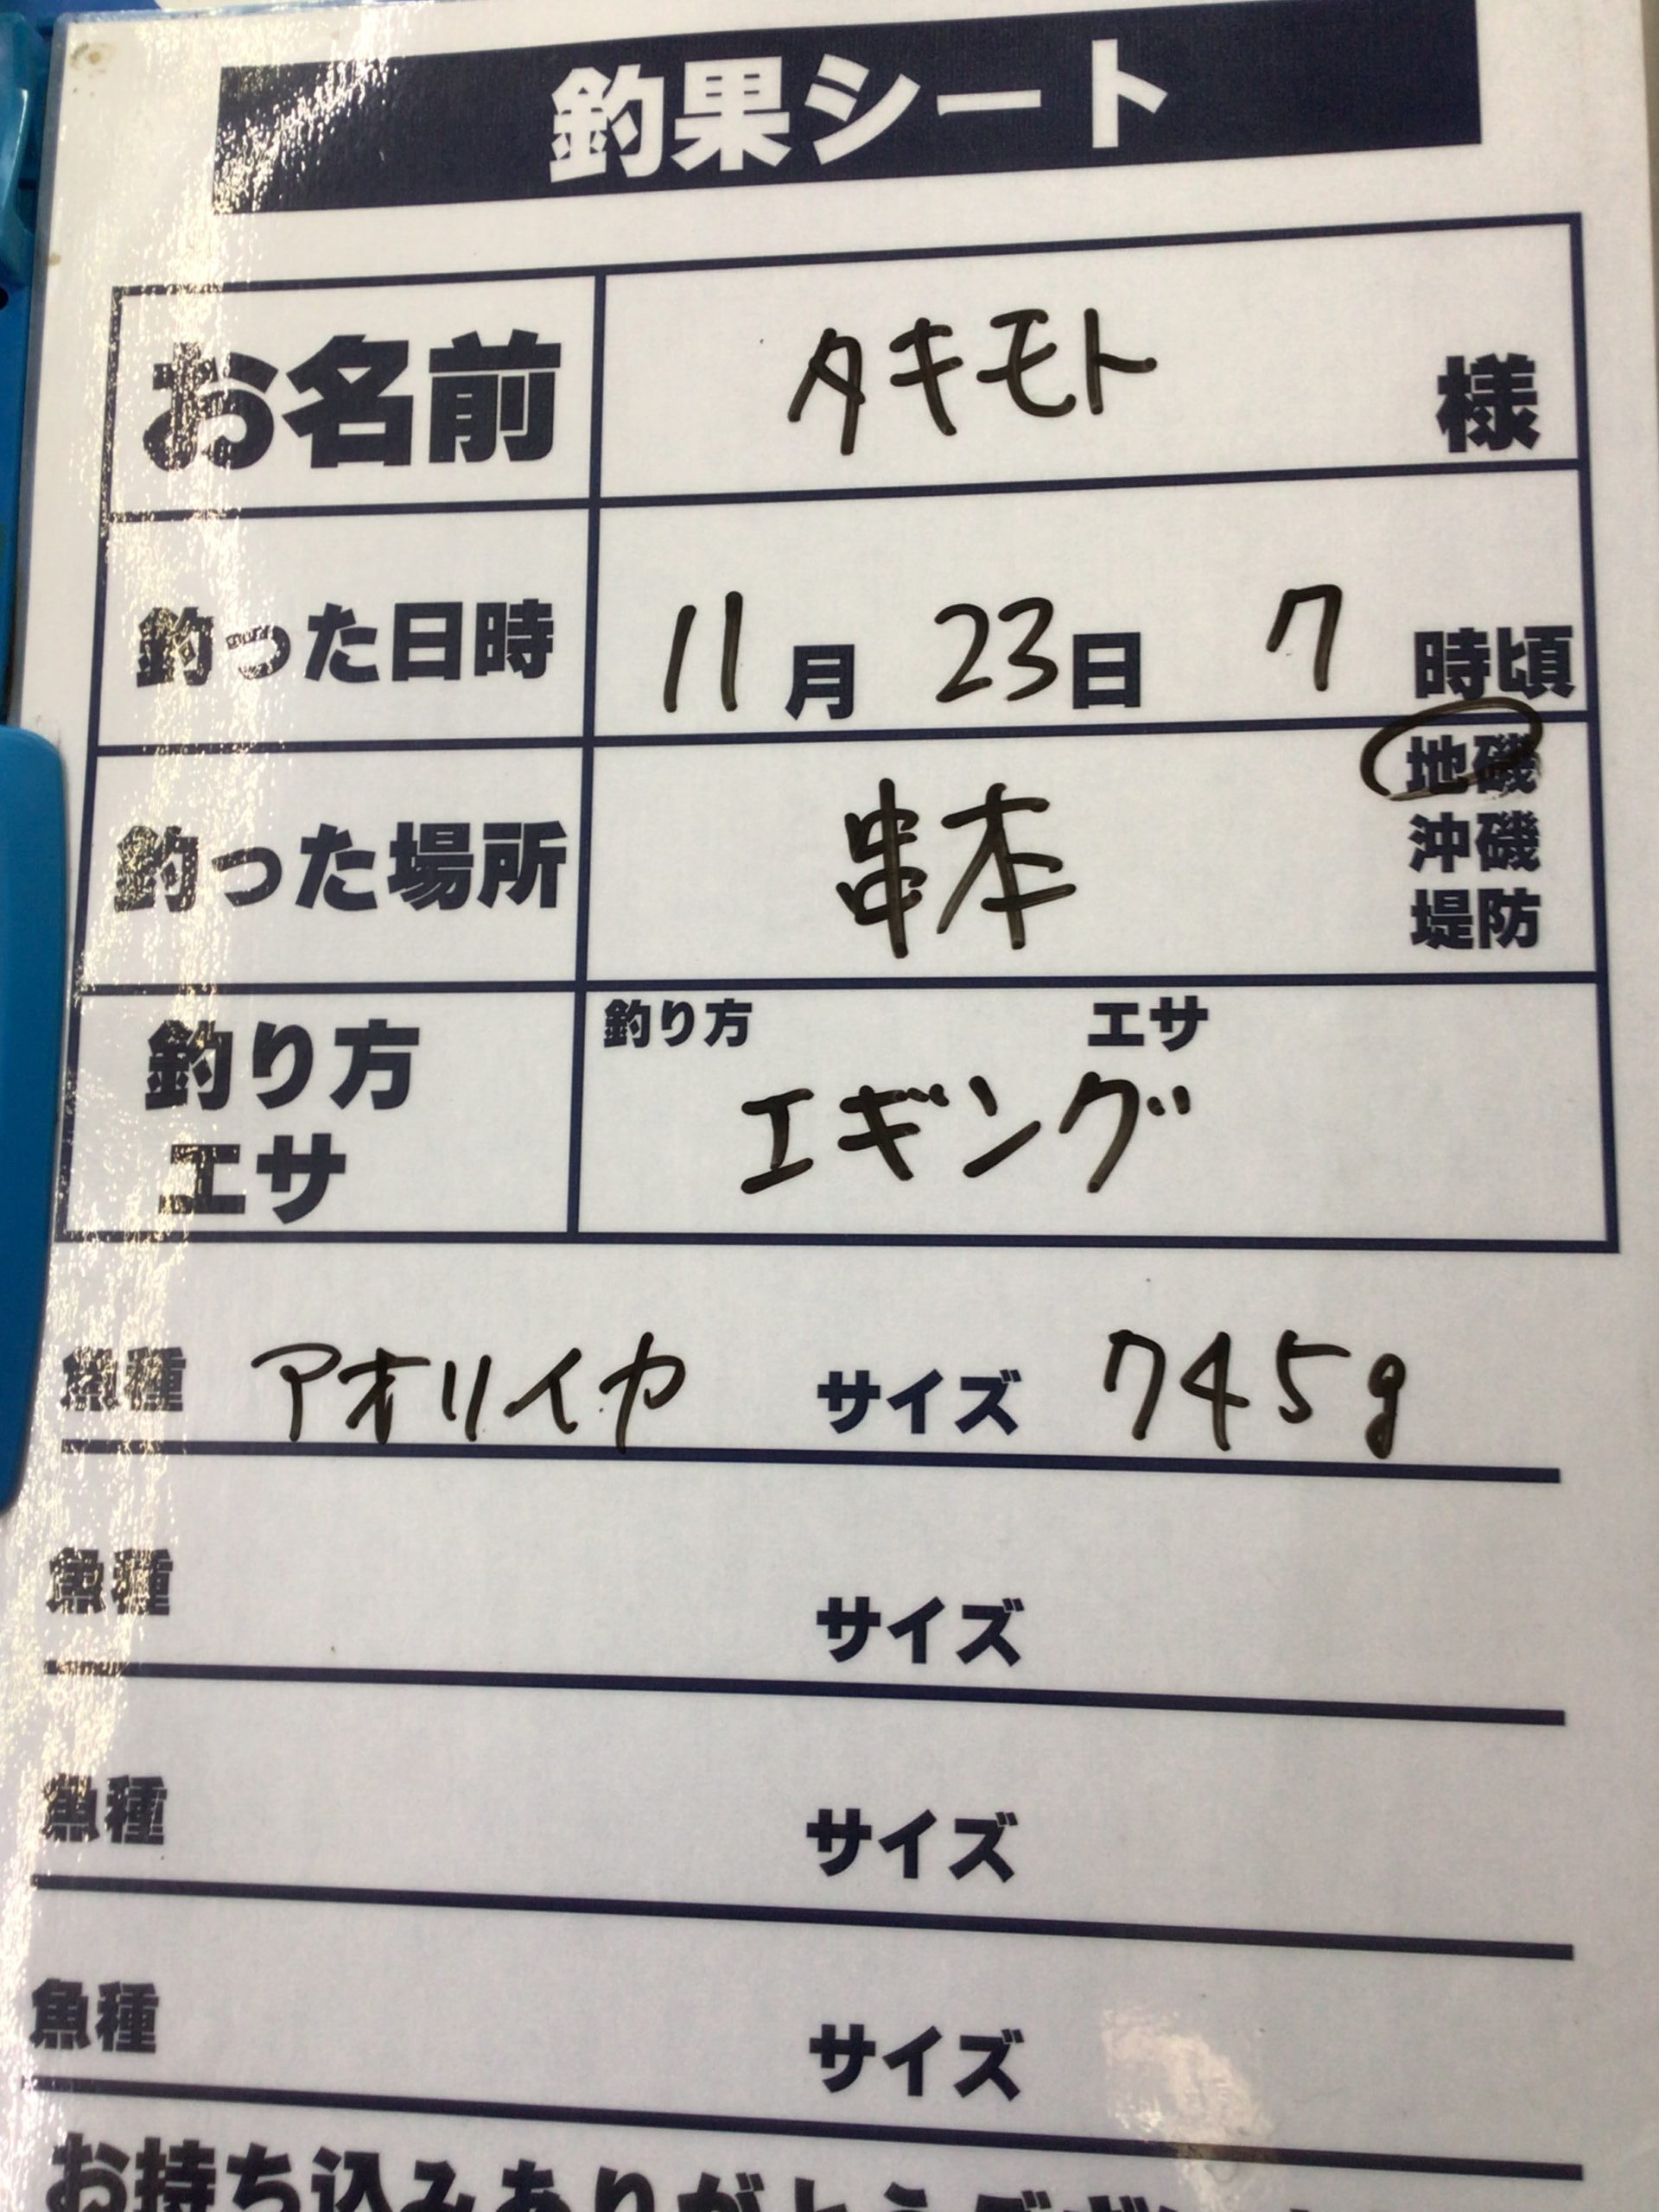 釣果シート
お名前 タキモト 様
釣った日時 11月 23日 7時頃
釣った場所 串本 地磯
沖磯
堤防
釣り方 エサ
釣り方
エサ エギング
魚種 アオリイカ サイズ 745g
魚種 サイズ
魚種 サイズ
魚種 サイズ
お持ち込みありがとうござい